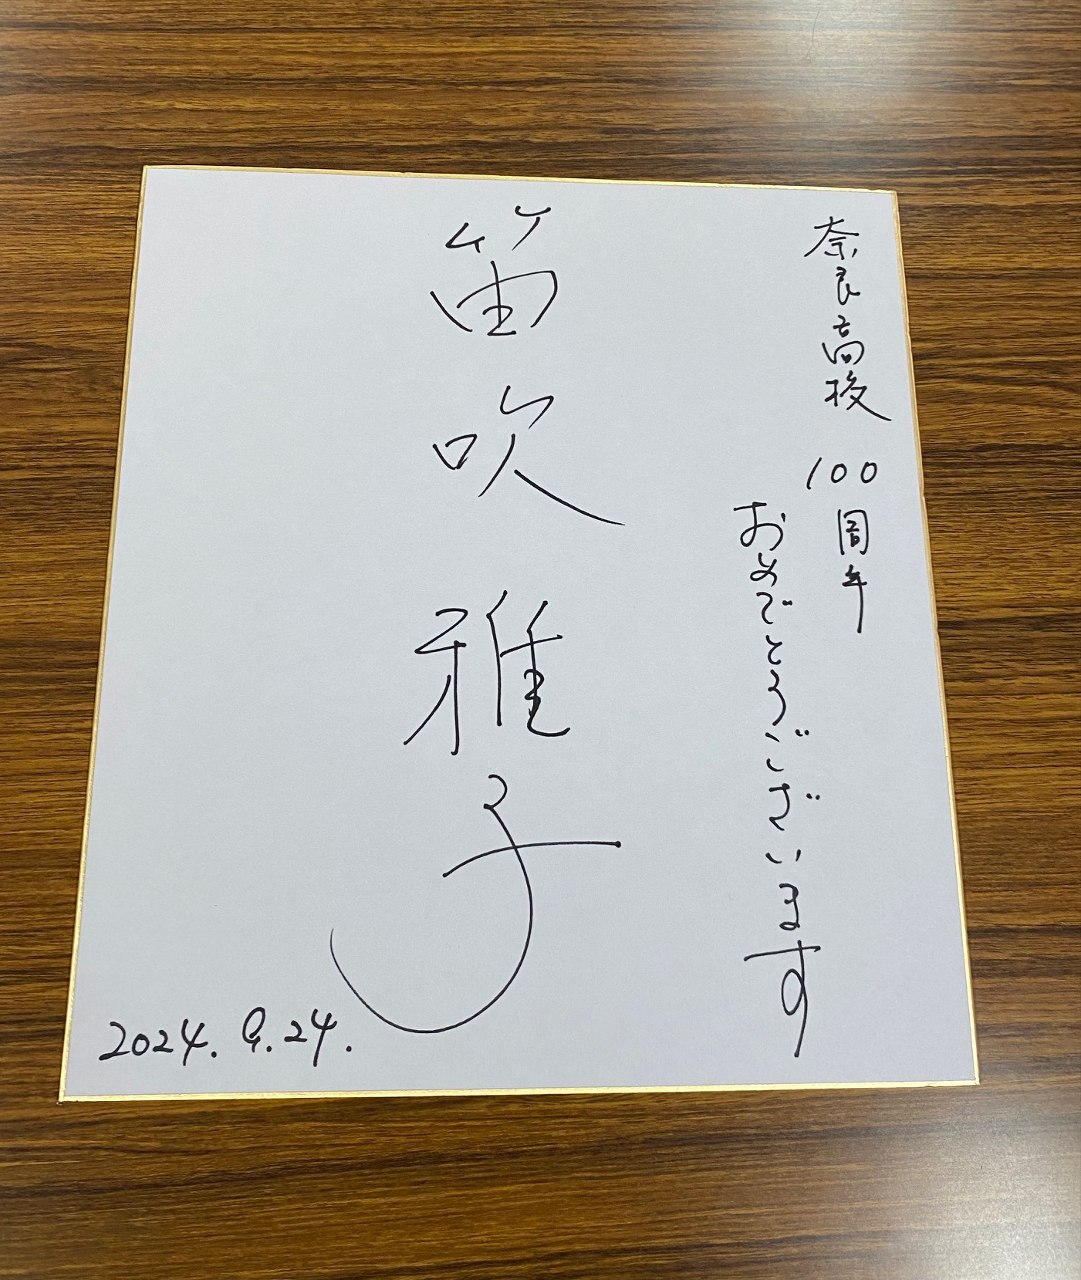 奈良高校 100周年
おめでとうございます
笛吹雅子
2024.9.24.